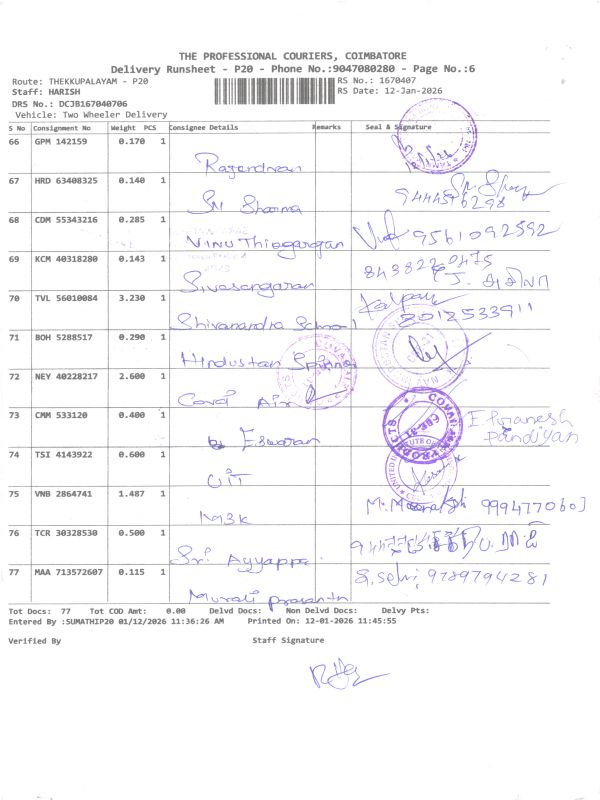 THE PROFESSIONAL COURIERS, COIMBATORE
Delivery Runsheet - P20 - Phone No.:9047080280 - Page No.:6
Route: THEKKUPALAYAM - P20
RS No.: 1670407
Staff: HARISH
RS Date: 12-Jan-2026
DRS No.: DCJB167040706
Vehicle: Two Wheeler Delivery
S No Consignment No Weight PCS Consignee Details Remarks Seal & Signature
66 GPM 142159 0.170 1
Rajendran
67 HRD 63408325 0.140 1
Sri Sharma
68 CDM 55343216 0.285 1
Vinu Thiagargan 9561092592
69 KCM 40318280 0.143 1
Sivasangaran
70 TVL 56010084 3.230 1
Shivanandha School
71 BOH 5288517 0.290 1
Hindustan
72 NEY 40228217 2.600 1
Covai Air
73 CMM 533120 0.400 1
Eswaran E. Pranesh Pandiyan
74 TSI 4143922 0.600 1
UIT
75 VNB 2864741 1.487 1
M3K
76 TCR 30328530 0.500 1
Sri Ayyappa
77 MAA 713572607 0.115 1
Murali Prasanth S. Selvi 9789794281
Tot Docs: 77 Tot COD Amt: 0.00 Delvd Docs: Non Delvd Docs: Delvy Pts:
Entered By :SUMATHIP20 01/12/2026 11:36:26 AM Printed On: 12-01-2026 11:45:55
Verified By Staff Signature